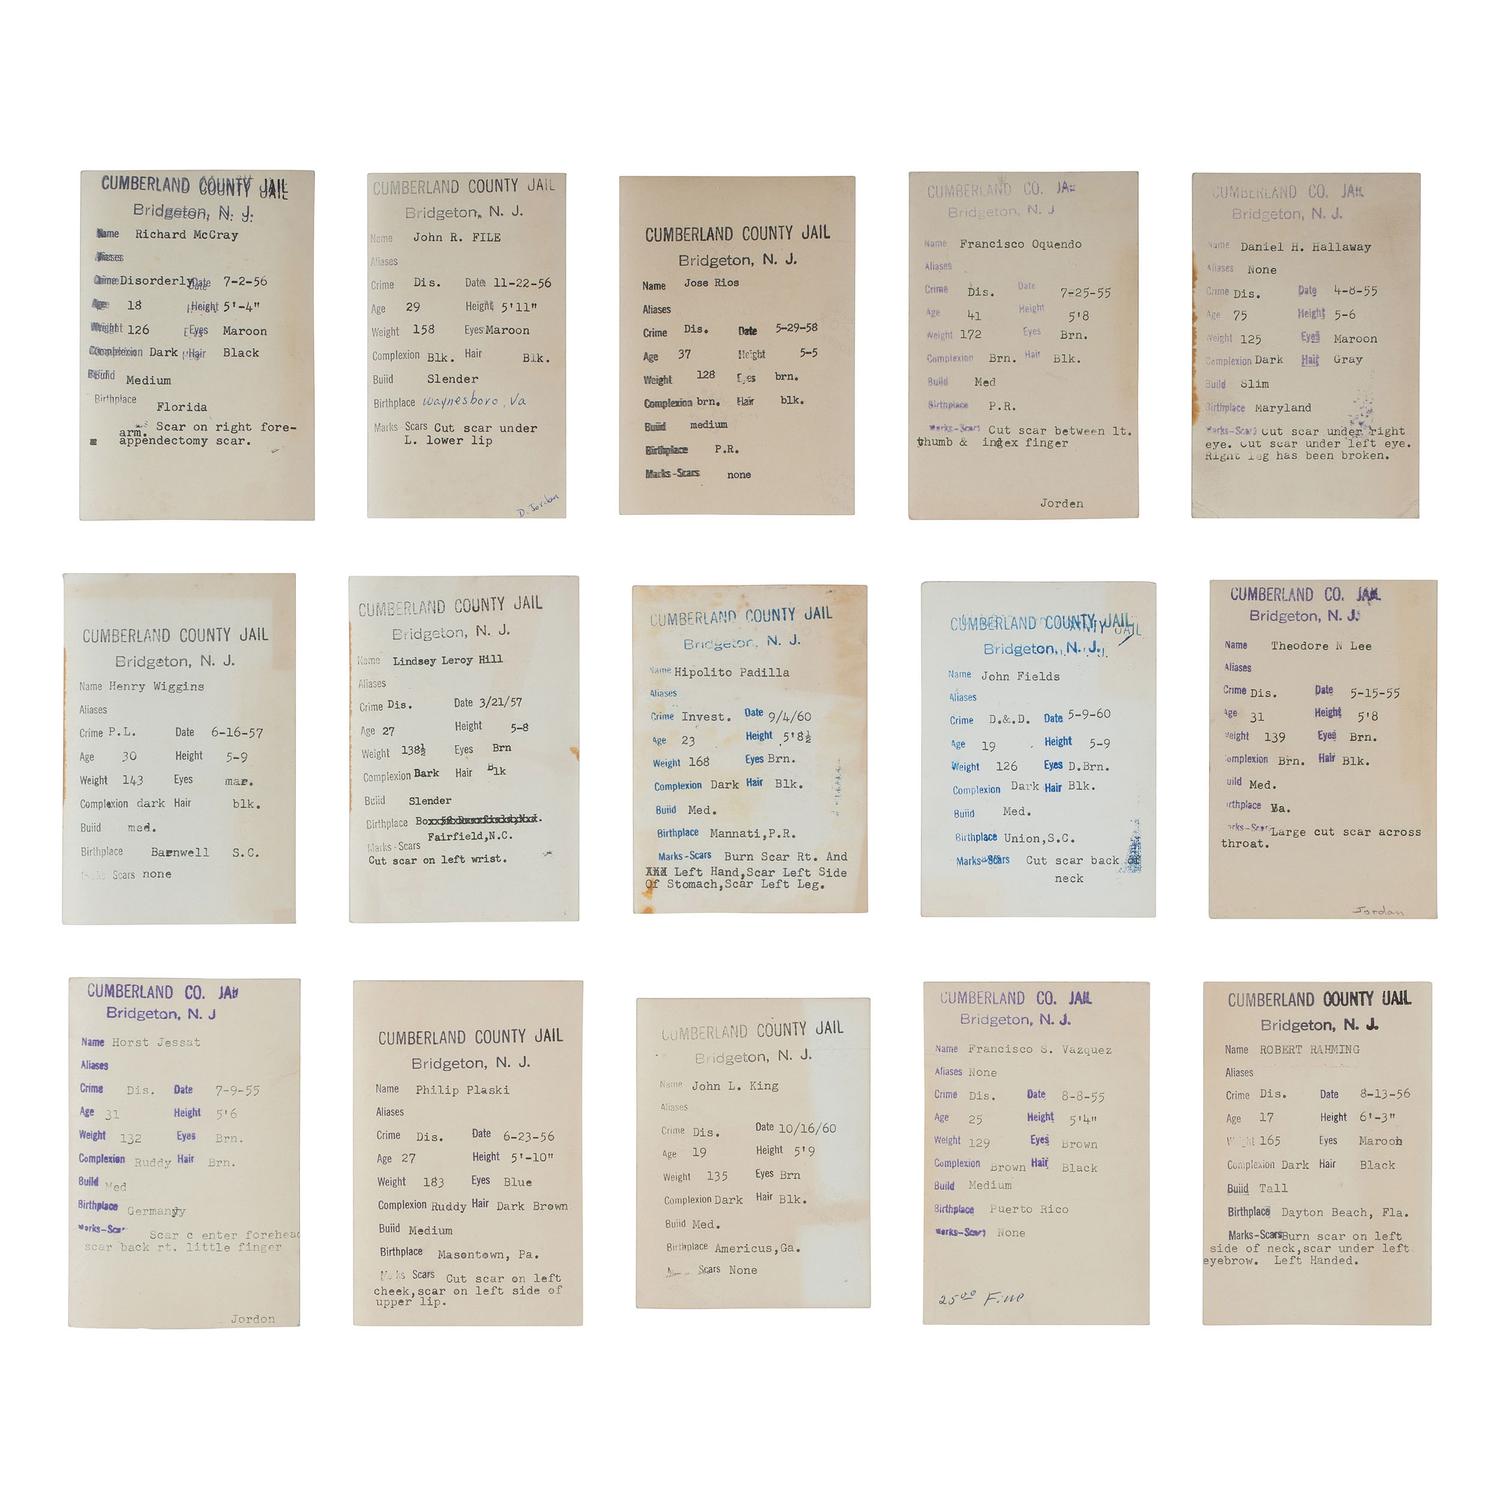 CUMBERLAND COUNTY JAIL
Bridgeton, N. J.
Name Richard McCray
Aliases
Crime Disorderly Date 7-2-56
Age 18 Height 5'-4"
Weight 126 Eyes Maroon
Complexion Dark Hair Black
Build Medium
Birthplace
Florida
Scar on right fore-
arm.
appendectomy scar.
CUMBERLAND COUNTY JAIL
Bridgeton, N. J.
Name John R. FILE
Aliases
Crime Dis. Date 11-22-56
Age 29 Height 5'11"
Weight 158 Eyes Maroon
Complexion Blk. Hair Blk.
Buiid Slender
Birthplace Waynesboro, Va
Marks Scars Cut scar under
L. lower lip
D. Jordan
CUMBERLAND COUNTY JAIL
Bridgeton, N. J.
Name Jose Rios
Aliases
Crime Dis. Date 5-29-58
Age 37 Height 5-5
Weight 128 Eyes brn.
Complexion brn. Hair blk.
Buiid medium
Birthplace P.R.
Marks-Scars none
CUMBERLAND CO. JAIL
Bridgeton, N. J
Name Francisco Oquendo
Aliases
Crime Dis. Date 7-25-55
Age 41 Height 5'8
Weight 172 Eyes Brn.
Complexion Brn. Hair Blk.
Build Med
Birthplace P.R.
Marks-Scars Cut scar between lt.
thumb & index finger
Jorden
CUMBERLAND CO. JAIL
Bridgeton, N. J.
Name Daniel H. Hallaway
Aliases None
Crime Dis. Date 4-8-55
Age 75 Height 5-6
Weight 125 Eyes Maroon
Complexion Dark Hair Gray
Build Slim
Birthplace Maryland
Marks-Scars Cut scar under right
eye. Cut scar under left eye.
Right leg has been broken.
CUMBERLAND COUNTY JAIL
Bridgeton, N. J.
Name Henry Wiggins
Aliases
Crime P.L. Date 6-16-57
Age 30 Height 5-9
Weight 143 Eyes mar.
Complexion dark Hair blk.
Buiid med.
Birthplace Barnwell S.C.
Scars none
CUMBERLAND COUNTY JAIL
Bridgeton, N. J.
Name Lindsey Leroy Hill
Aliases
Crime Dis. Date 3/21/57
Age 27 Height 5-8
Weight 138½ Eyes Brn
Complexion Dark Hair Blk
Buiid Slender
Birthplace
Fairfield,N.C.
Marks-Scars
Cut scar on left wrist.
CUMBERLAND COUNTY JAIL
Bridgeton, N. J.
Name Hipolito Padilla
Aliases
Crime Invest. Date 9/4/60
Age 23 Height 5'8½
Weight 168 Eyes Brn.
Complexion Dark Hair Blk.
Buiid Med.
Birthplace Mannati,P.R.
Marks-Scars Burn Scar Rt. And
XXX Left Hand,Scar Left Side
Of Stomach,Scar Left Leg.
CUMBERLAND COUNTY JAIL
Bridgeton, N. J.
Name John Fields
Aliases
Crime D.&.D. Date 5-9-60
Age 19 Height 5-9
Weight 126 Eyes D.Brn.
Complexion Dark Hair Blk.
Buiid Med.
Birthplace Union,S.C.
Marks-Scars Cut scar back
neck
CUMBERLAND CO. JAIL
Bridgeton, N. J.
Name Theodore N Lee
Aliases
Crime Dis. Date 5-15-55
Age 31 Height 5'8
Weight 139 Eyes Brn.
Complexion Brn. Hair Blk.
Build Med.
Birthplace Va.
Marks-Scars Large cut scar across
throat.
Jordan
CUMBERLAND CO. JAIL
Bridgeton, N. J
Name Horst Jessat
Aliases
Crime Dis. Date 7-9-55
Age 31 Height 5'6
Weight 132 Eyes Brn.
Complexion Ruddy Hair Brn.
Build Med
Birthplace Germany
Marks-Scar Scar c enter forehead
scar back rt. little finger
Jordon
CUMBERLAND COUNTY JAIL
Bridgeton, N. J.
Name Philip Plaski
Aliases
Crime Dis. Date 6-23-56
Age 27 Height 5'-10"
Weight 183 Eyes Blue
Complexion Ruddy Hair Dark Brown
Buiid Medium
Birthplace Masontown, Pa.
Marks Scars Cut scar on left
cheek,scar on left side of
upper lip.
CUMBERLAND COUNTY JAIL
Bridgeton, N. J.
Name John L. King
Aliases
Crime Dis. Date 10/16/60
Age 19 Height 5'9
Weight 135 Eyes Brn
Complexion Dark Hair Blk.
Buiid Med.
Birthplace Americus,Ga.
Scars None
CUMBERLAND CO. JAIL
Bridgeton, N. J.
Name Francisco S. Vazquez
Aliases None
Crime Dis. Date 8-8-55
Age 25 Height 5'4"
Weight 129 Eyes Brown
Complexion Brown Hair Black
Build Medium
Birthplace Puerto Rico
Marks-Scars None
25.00 Fine
CUMBERLAND COUNTY JAIL
Bridgeton, N. J.
Name ROBERT RAHMING
Aliases
Crime Dis. Date 8-13-56
Age 17 Height 6'-3"
Weight 165 Eyes Maroon
Complexion Dark Hair Black
Buiid Tall
Birthplace Dayton Beach, Fla.
Marks-Scars Burn scar on left
side of neck,scar under left
eyebrow. Left Handed.